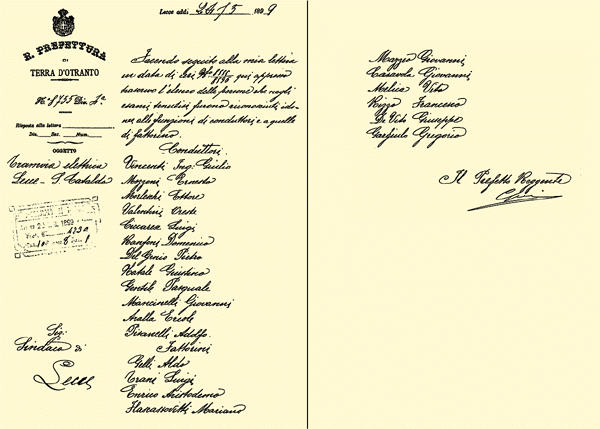 Lecce addì 24/5 1899
R. PREFETTURA
DI
TERRA D'OTRANTO
N.º 8755 Div. 3ª
Risposta alla lettera
Div. Sez. Num.
OGGETTO
Tramvia elettrica
Lecce - S. Cataldo
1899
Sig.
Sindaco di
Lecce
Facendo seguito alla mia lettera
in data di ieri Nº qui appresso
trascrivo l'elenco delle persone che negli
esami tenutisi furono riconosciuti ido-
nei alle funzioni di conduttori e a quelle
di fattorino.
Conduttori
Vincenti Ing. Giulio
Mazzoni Ernesto
Morlecchi Ettore
Valentini Oreste
Ciccarese Luigi
Manfoni Domenico
Del Genio Pietro
Natale Giustino
Gentile Pasquale
Mancinelli Giovanni
Aralla Ercole
Pisanelli Adolfo
Fattorini
Gelli Aldo
Trani Luigi
Enrico Aristodemo
Mariano
Mazzeo Giovanni
Casavola Giovanni
Melica Vito
Rizzo Francesco
De Vito Giuseppe
Garfiulo Gregorio
Il Prefetto Reggente